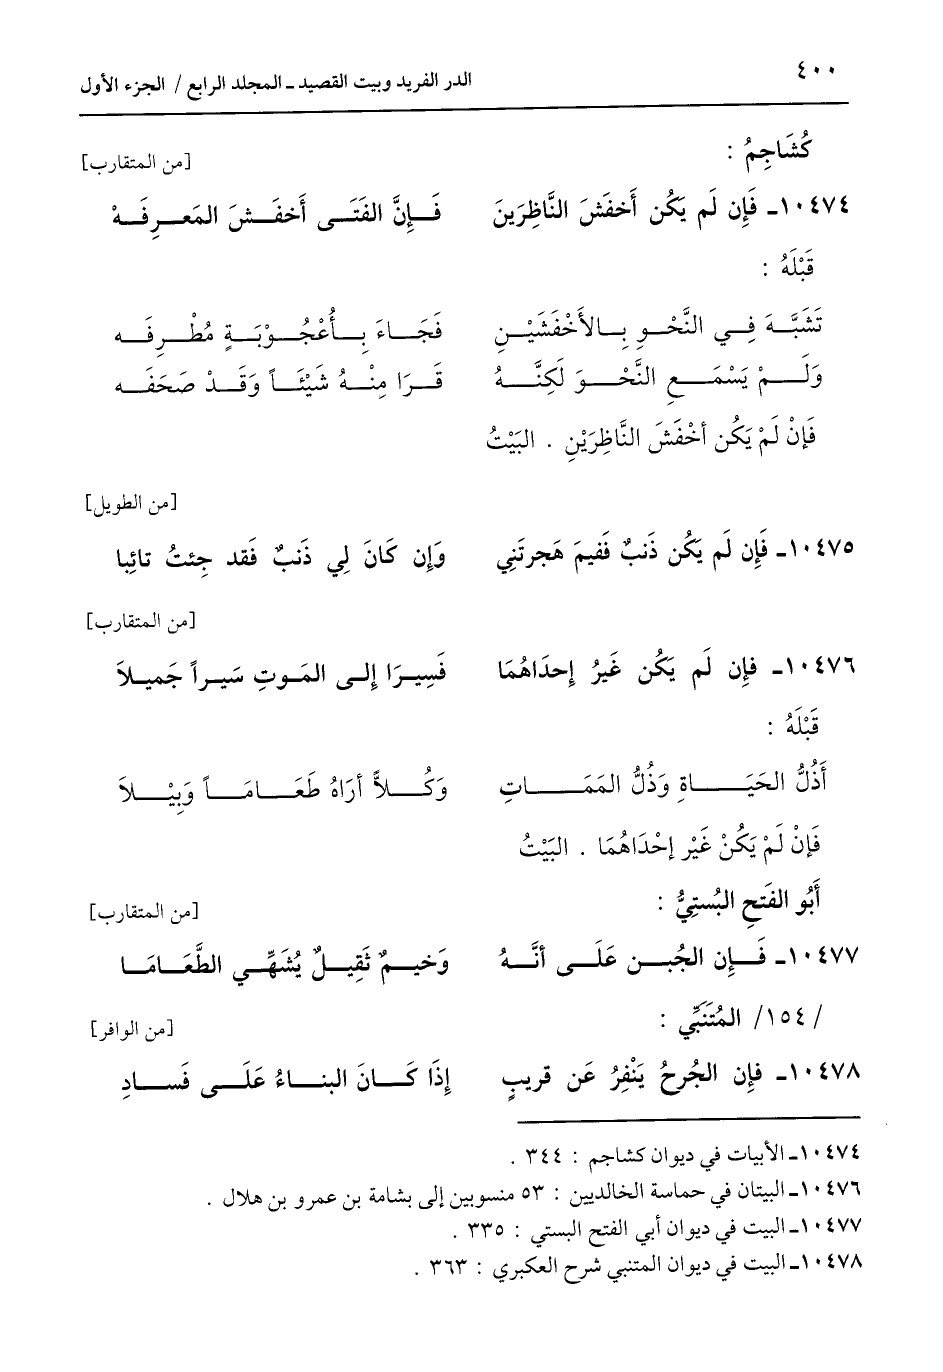 ٤٠٠
الدر الفريد وبيت القصيد ـ المجلد الرابع / الجزء الأول
كُشَاجِمُ :
[من المتقارب]
١٠٤٧٤ـ فَإِن لَم يَكُن أَخفَشَ النَّاظِرَينَ فَإِنَّ الفَتَى أَخفَشَ المَعرِفَهْ
قَبْلَهُ :
تَشَبَّهَ فِي النَّحْوِ بِالأَخْفَشَيْنِ فَجَاءَ بِأُعْجُوْبَةٍ مُطْرِفَه
وَلَمْ يَسْمَعِ النَّحْوَ لَكِنَّهُ قَرَا مِنْهُ شَيْئَاً وَقَدْ صَحَفَه
فَإِنْ لَمْ يَكُن أخْفَشَ النَّاظِرَيْنِ . البَيْتُ
[من الطويل]
١٠٤٧٥ـ فَإِن لَم يَكُن ذَنبٌ فَفيمَ هَجرتَنِي وَإِن كَانَ لِي ذَنبٌ فَقد جِئتُ تائِبا
[من المتقارب]
١٠٤٧٦ـ فإِن لَم يَكُن غَيرُ إِحدَاهُمَا فَسِيرَا إِلى المَوتِ سَيراً جَميلاَ
قَبْلَهُ :
أَذُلُّ الحَيَاةِ وَذُلُّ المَمَاتِ وَكُلاًّ أرَاهُ طَعَامَاً وَبِيْلاَ
فَإنْ لَمْ يَكُنْ غَيْر إحْدَاهُمَا . البَيْتُ
أَبُو الفَتحِ البُستِيُّ :
[من المتقارب]
١٠٤٧٧ـ فَإِن الجُبن عَلَى أنَّهُ وَخيمٌ ثَقِيلٌ يُشَهِّي الطَّعَامَا
/ ١٥٤/ المُتَنَبِّي :
[من الوافر]
١٠٤٧٨ـ فإِن الجُرحُ يَنْفِرُ عَن قريبٍ إِذَا كَانَ البناءُ عَلَى فَسادِ
١٠٤٧٤ـ الأبيات في ديوان كشاجم : ٣٤٤ .
١٠٤٧٦ـ البيتان في حماسة الخالديين : ٥٣ منسوبين إلى بشامة بن عمرو بن هلال .
١٠٤٧٧ـ البيت في ديوان أبي الفتح البستي : ٣٣٥ .
١٠٤٧٨ـ البيت في ديوان المتنبي شرح العكبري : ٣٦٣ .